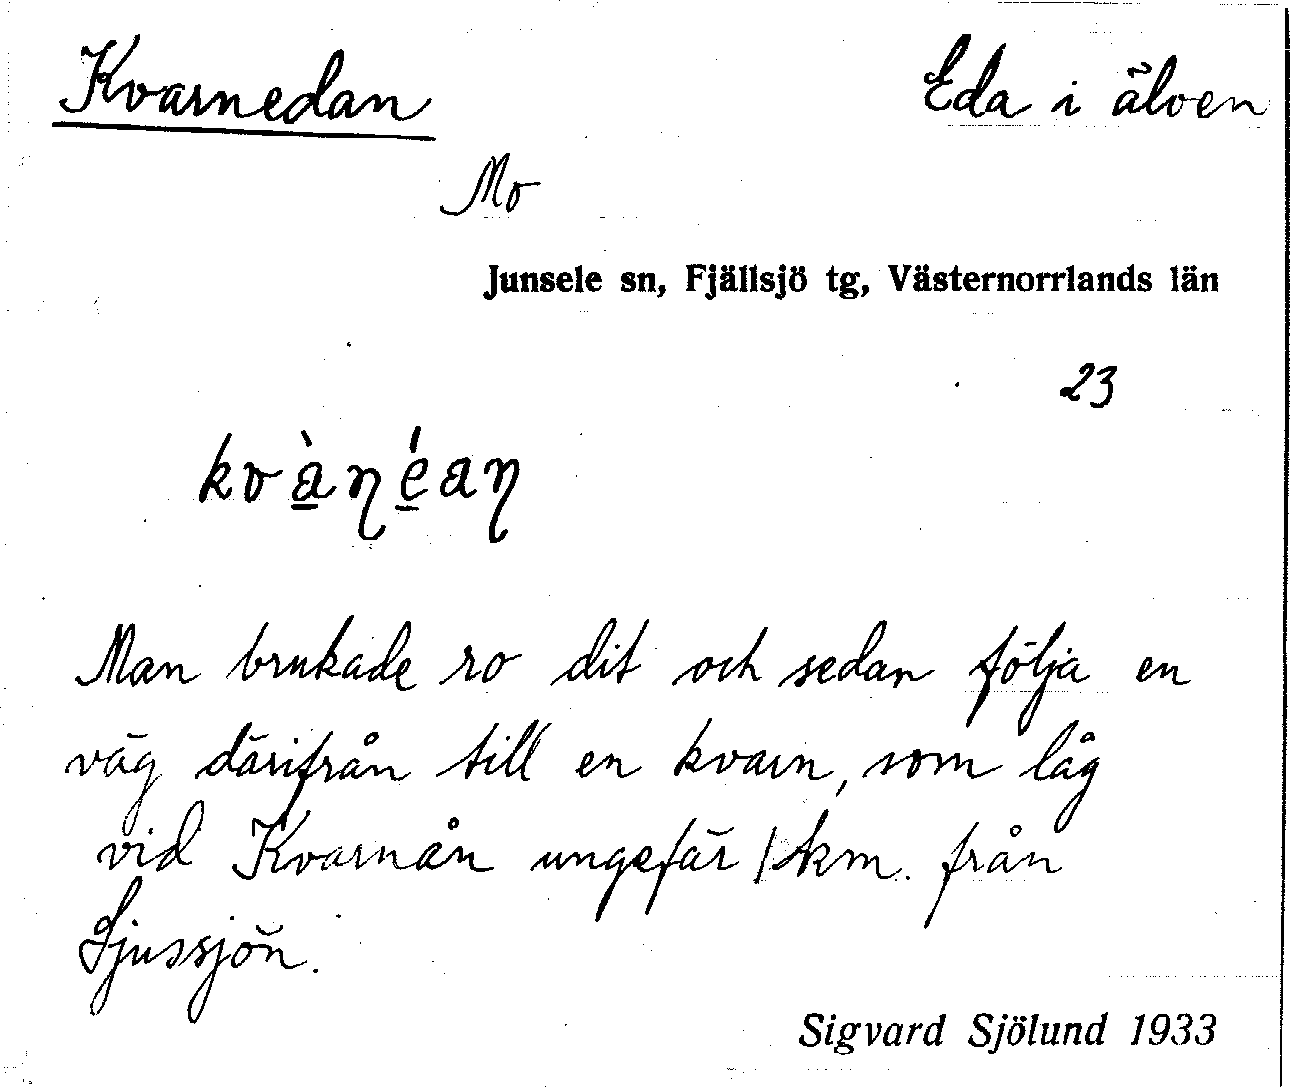 Kvarnedan
Eda i älven
Mo
Junsele sn, Fjällsjö tg, Västernorrlands län
23
kvàn̩éan̩
Man brukade ro dit och sedan följa en
väg därifrån till en kvarn, som låg
vid Kvarnån ungefär 1 km. från
Ljussjön.
Sigvard Sjölund 1933